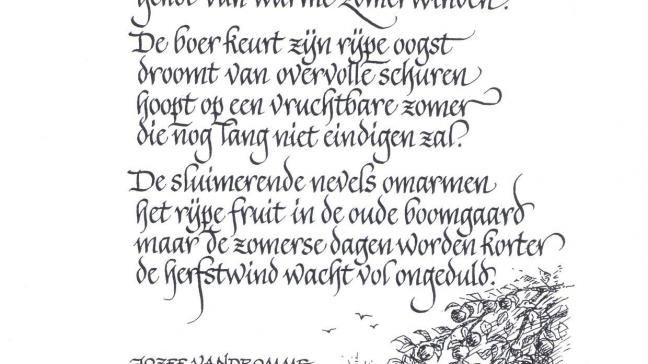 genot van warme zomerwinden.
De boer keurt zijn rijpe oogst
droomt van overvolle schuren
hoopt op een vruchtbare zomer
die nog lang niet eindigen zal.
De sluimerende nevels omarmen
het rijpe fruit in de oude boomgaard
maar de zomerse dagen worden korter
de herfstwind wacht vol ongeduld.
JOZEF VANDROMME